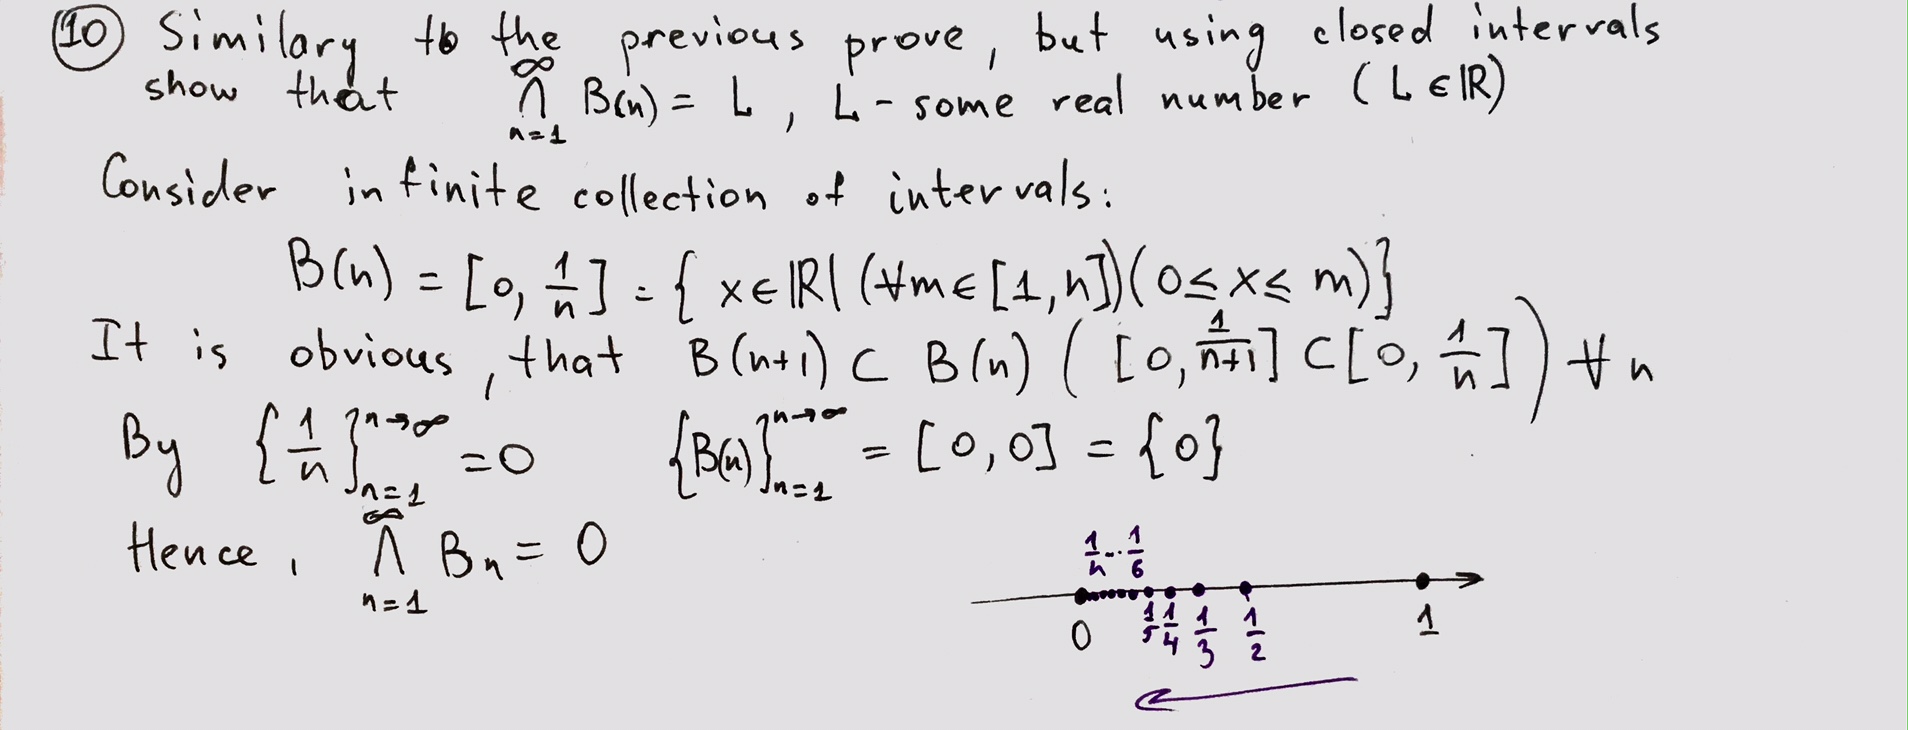 ⑩ Similary to the previous prove, but using closed intervals
show that ∞⋂n=1 B(n) = L, L - some real number (L ∈ ℝ)
Consider infinite collection of intervals:
B(n) = [0, 1/n] = { x ∈ ℝ | (∀m ∈ [1, n])(0 ≤ x ≤ m)}
It is obvious, that B(n+1) ⊂ B(n) ([0, 1/n+1] ⊂ [0, 1/n]) ∀n
By {1/n}n=1 n→∞ = 0 {B(n)}n=1 n→∞ = [0, 0] = {0}
Hence, ∞⋂n=1 Bn = 0
1/n ... 1/6
0 1/5 1/4 1/3 1/2 1